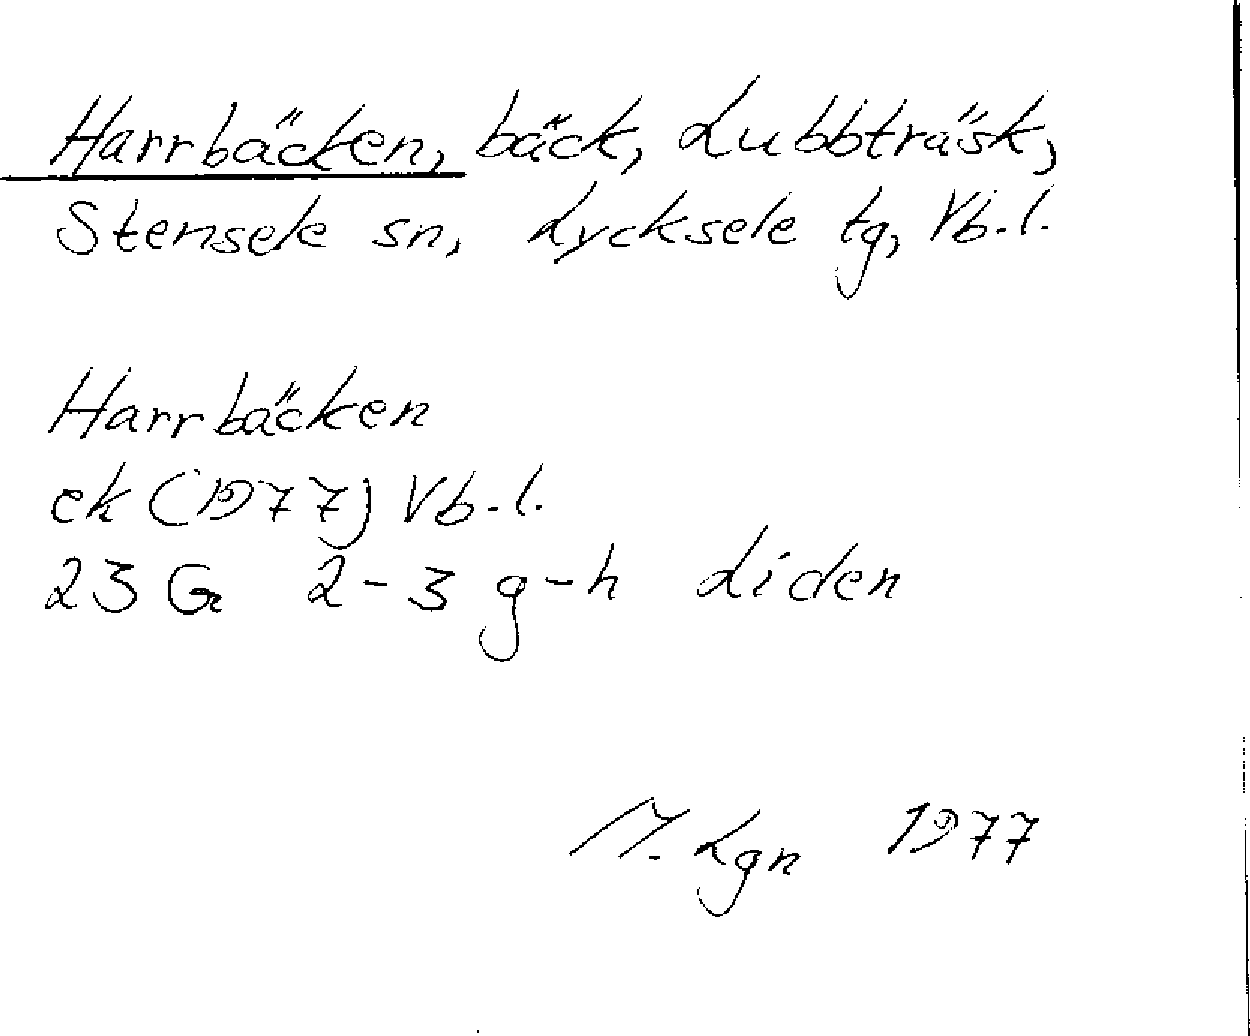 Harrbäcken, bäck, Lubbträsk,
Stensele sn, Lycksele tg, Vb.l.
Harrbäcken
ek (1977) Vb.l.
23 G 2-3 g-h Liden
M. Lgn 1977